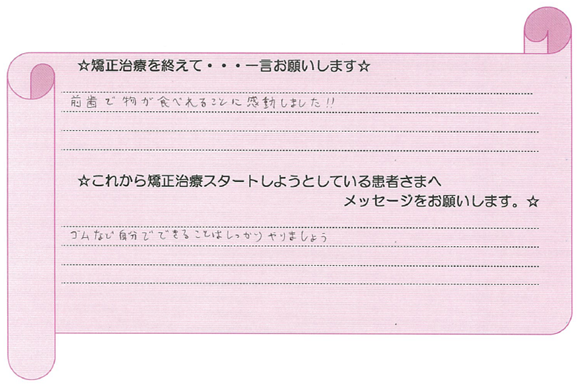 ☆矯正治療を終えて・・・一言お願いします☆
前歯で物が食べれることに感動しました!!
☆これから矯正治療スタートしようとしている患者さまへ
メッセージをお願いします。☆
ゴムなど自分でできることはしっかりやりましょう